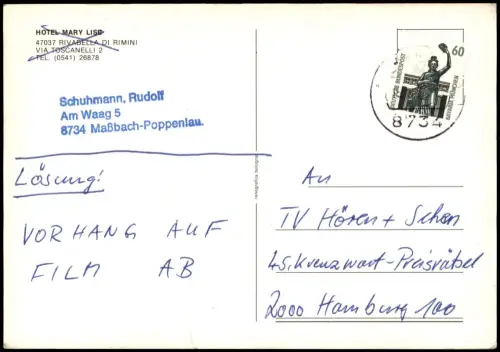 HOTEL MARY LISE
47037 RIVABELLA DI RIMINI
VIA TOSCANELLI 2
TEL. (0541) 26878
Schuhmann, Rudolf
Am Waag 5
8734 Maßbach-Poppenlau.
Lösung!
VORHANG AUF
FILM AB
60
DEUTSCHE BUNDESPOST
BAVARIA MÜNCHEN
8734
An
TV Hören + Sehen
45. Kreuzwort-Preisrätsel
2000 Hamburg 100